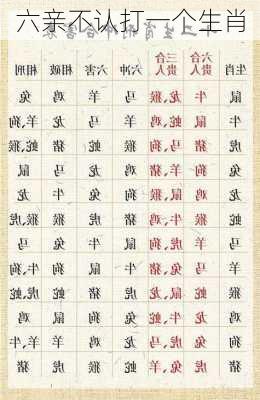 六亲不认打一个生肖
生肖 六合贵人 三合贵人 六冲 六害 相破 相刑
鼠 牛 龙,猴 马 羊 鸡 兔
牛 鼠 蛇,鸡 羊 马 龙 羊,狗
虎 猪 马,狗 猴 蛇 猪 蛇,猴
兔 狗 羊,猪 鸡 龙 马 鼠
龙 鸡 鼠,猴 狗 兔 牛 龙
蛇 猴 牛,鸡 猪 虎 猴 虎,猴
马 羊 虎,狗 鼠 牛 兔 马
羊 马 兔,猪 牛 鼠 狗 牛,狗
猴 蛇 鼠,龙 虎 猪 蛇 虎,蛇
鸡 龙 牛,蛇 兔 狗 鼠 鸡
狗 兔 虎,马 龙 鸡 羊 牛,羊
猪 虎 兔,羊 蛇 猴 虎 猪